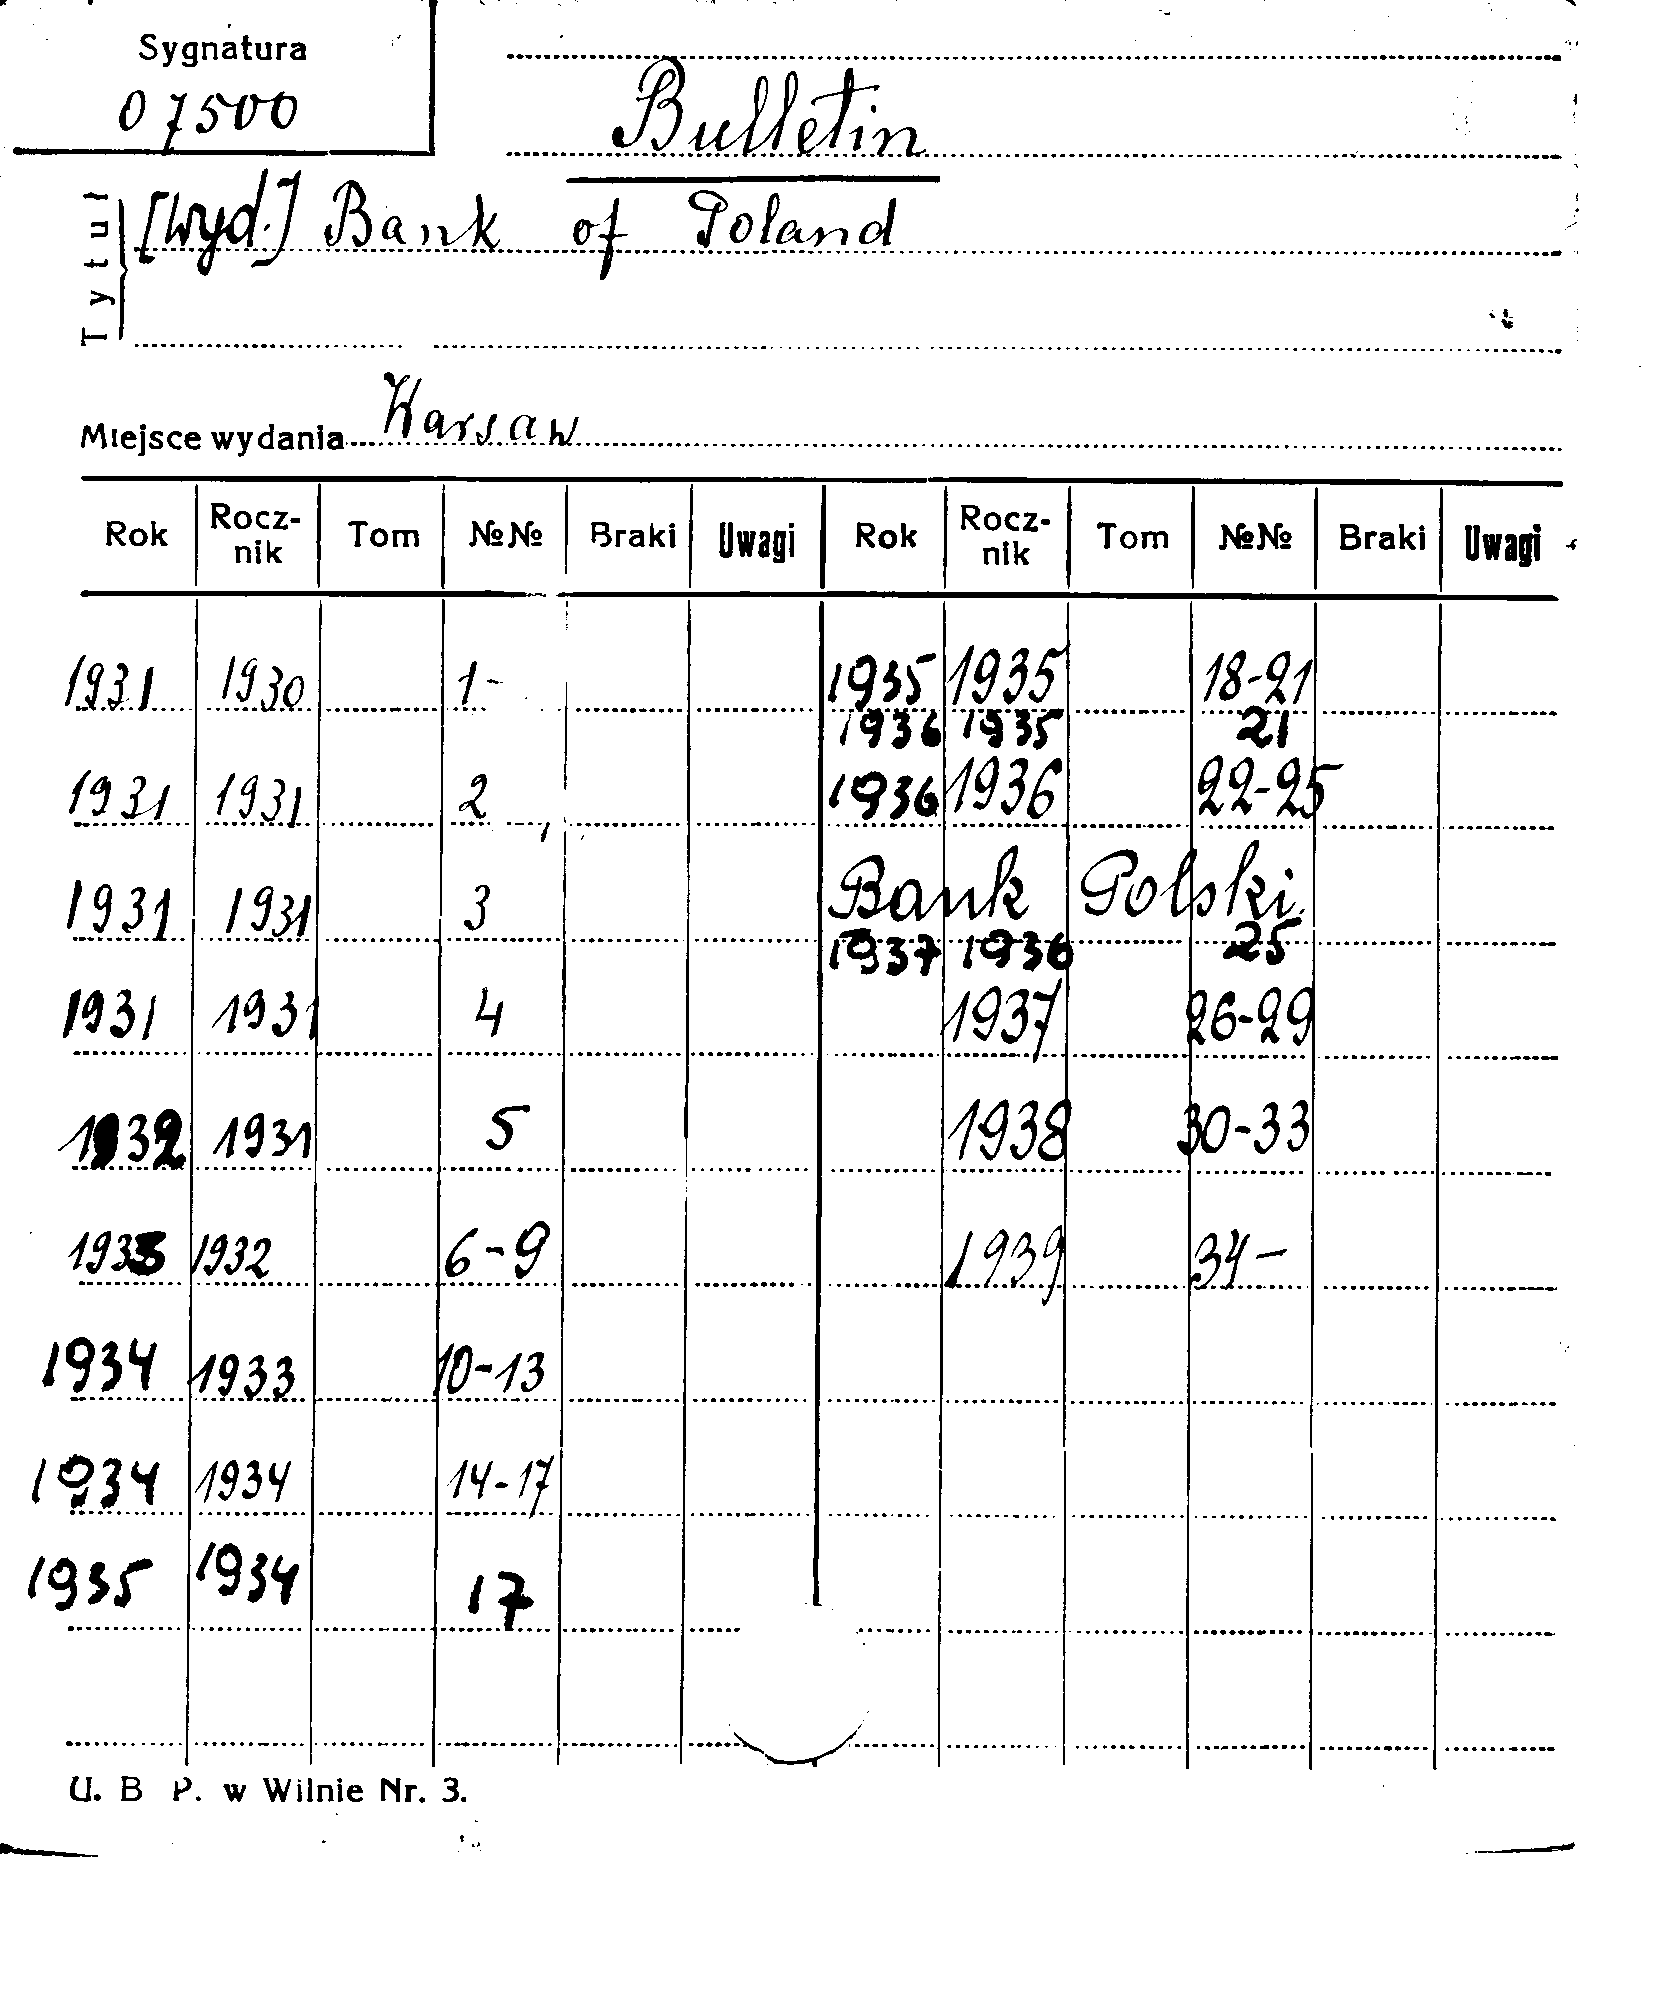 Sygnatura
07500
Bulletin
Tytuł
[Wyd.] Bank of Poland
Miejsce wydania Warsaw
Rok Rocz-nik Tom №№ Braki Uwagi Rok Rocz-nik Tom №№ Braki Uwagi
1931 1930 1- 1935 1935 18-21
1936 1935 21
1931 1931 2 1936 1936 22-25
1931 1931 3 Bank Polski
1937 1936 25
1931 1931 4 1937 26-29
1932 1931 5 1938 30-33
1933 1932 6-9 1939 34-
1934 1933 10-13
1934 1934 14-17
1935 1934 17
U. B P. w Wilnie Nr. 3.